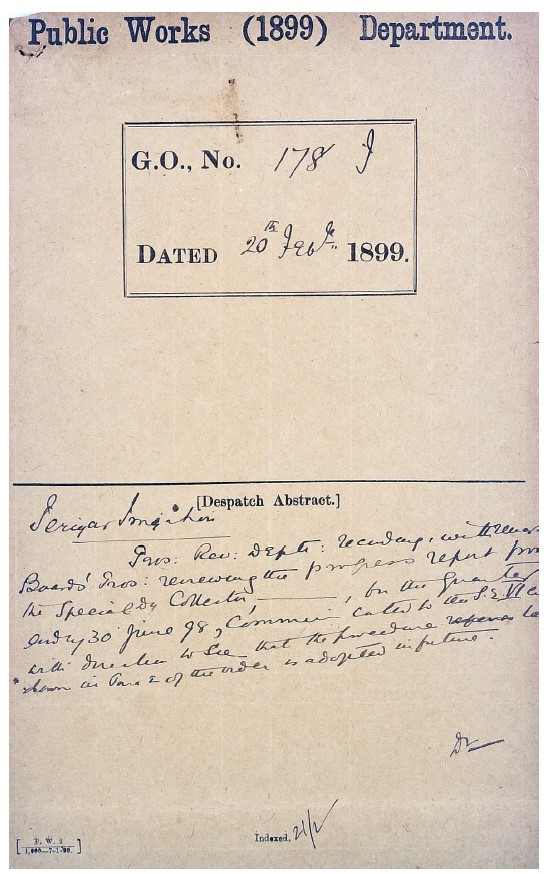 Public Works (1899) Department.
G.O., No. 178 I
DATED 20th Feb. 1899.
[Despatch Abstract.]
Periyar Irrigation
Pros: Rev: Depts: recording, with
Boards' Pros: reviewing the progress report from
the Special Dy Collector, for the Quarter
ending 30 June 98, Commun cated to the S.E. VI
with direction to see that the procedure referred to
shown in Para 2 of the order is adopted in future.
Indexed, 21/2
[P. W. 3
1,000—7-1-99.]